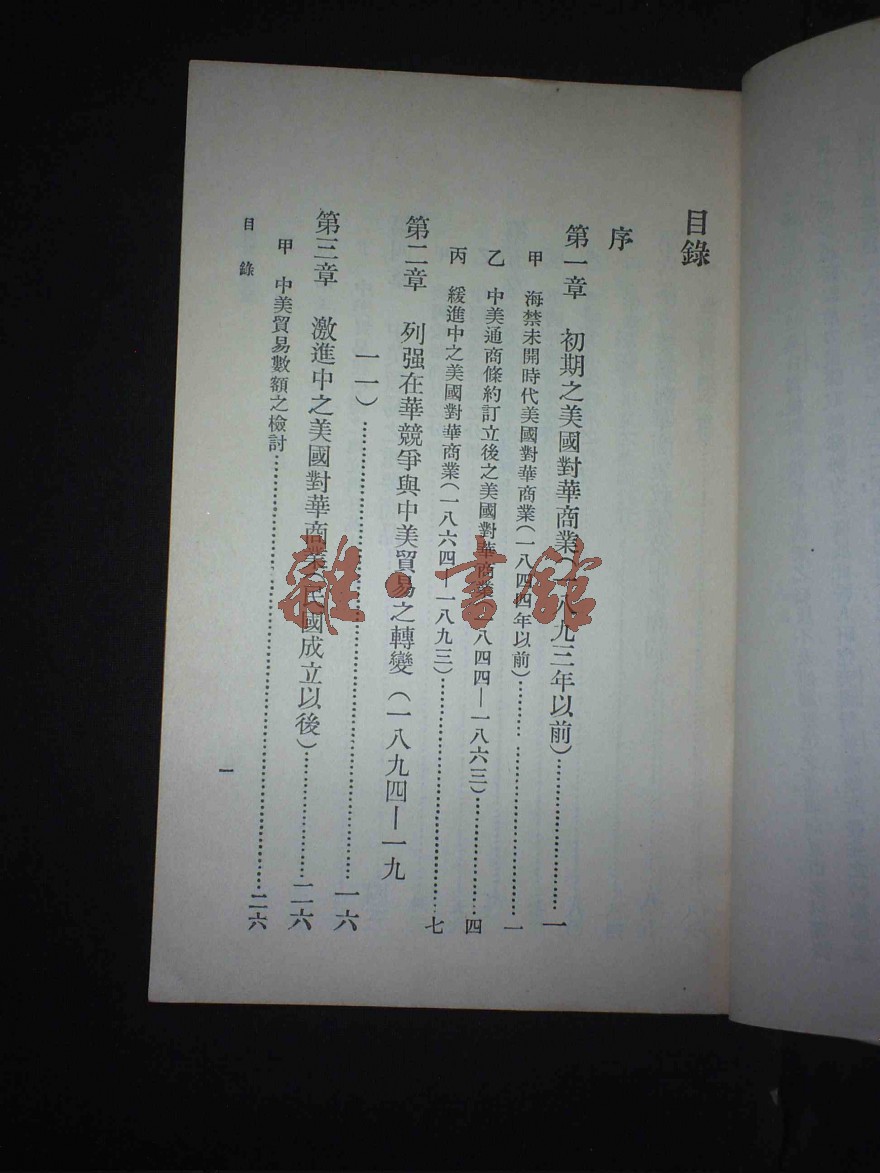 目錄
序
第一章　初期之美國對華商業（一八九三年以前）……一
甲　海禁未開時代美國對華商業（一八四四年以前）……一
乙　中美通商條約訂立後之美國對華商業（一八四四—一八六三）……四
丙　緩進中之美國對華商業（一八六四—一八九三）……七
第二章　列强在華競爭與中美貿易之轉變（一八九四—一九
一一）……一六
第三章　激進中之美國對華商業（民國成立以後）……二六
甲　中美貿易數額之檢討……二六
目錄
一
雜·書館